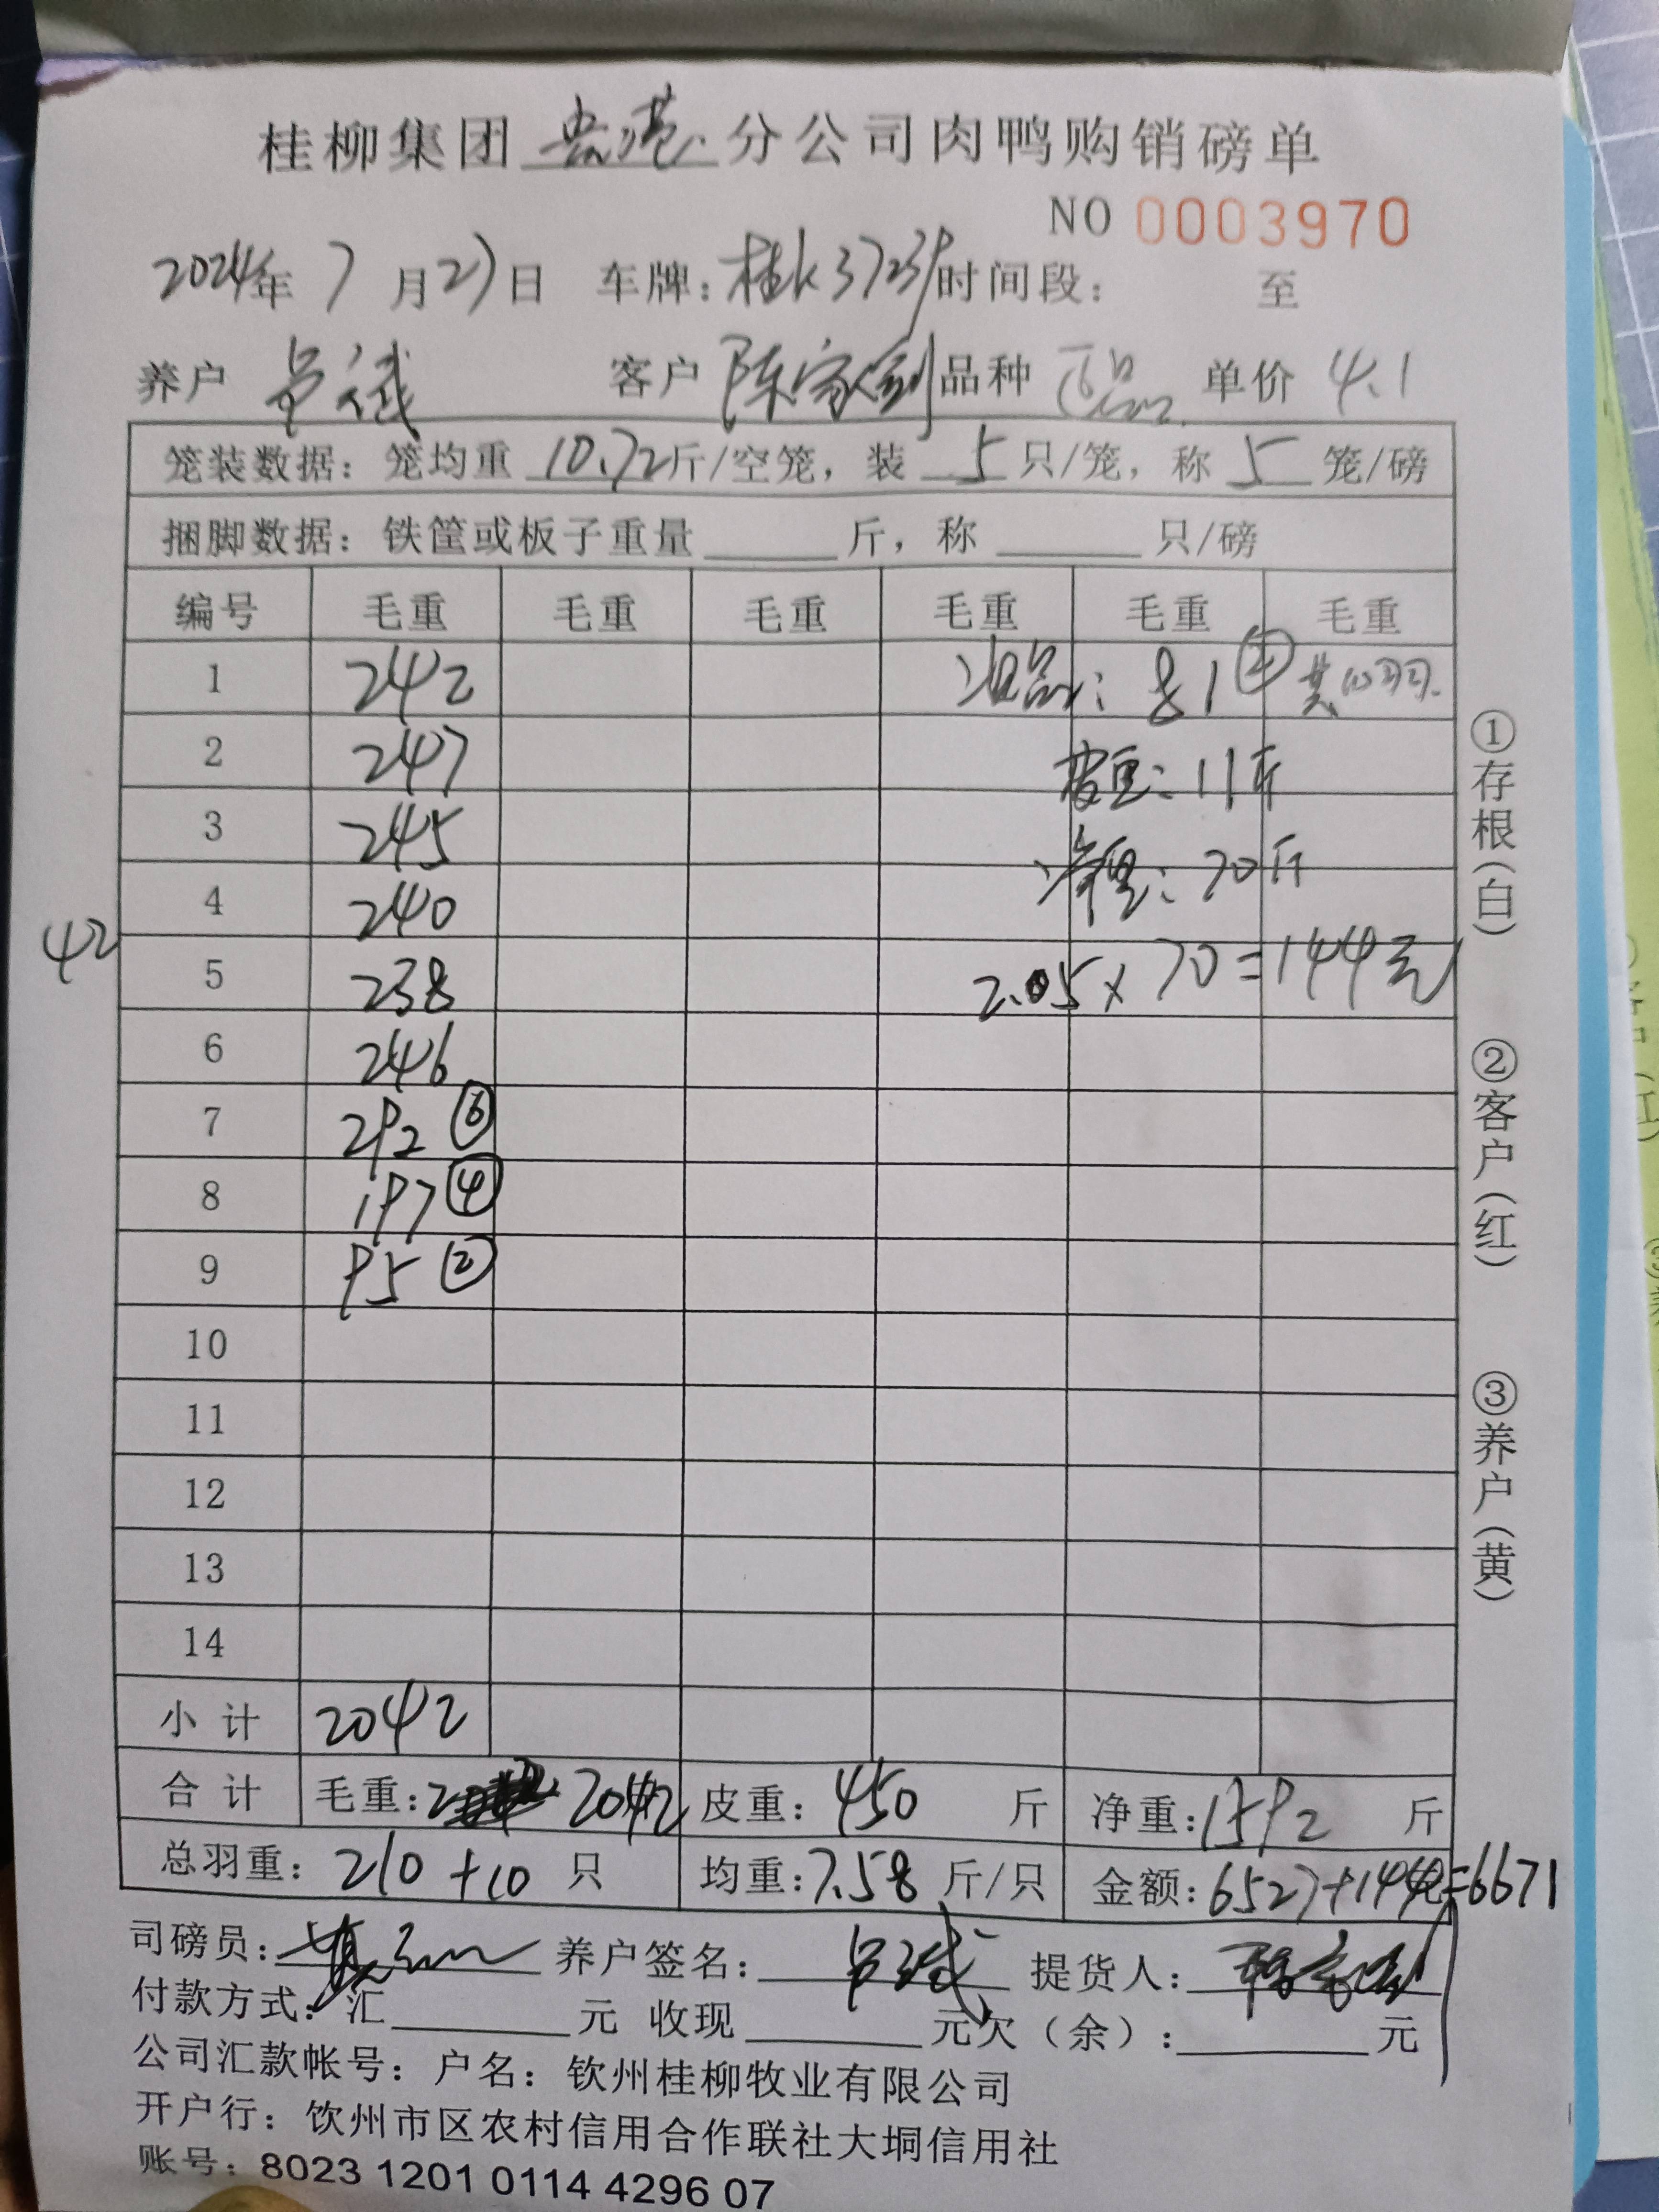 桂柳集团 贵港 分公司肉鸭购销磅单
NO 0003970
2024年 7 月 27 日 车牌：桂K 时间段： 至
养户 客户 陈家剑 品种 单价 4.1
笼装数据：笼均重 10.72 斤/空笼，装 5 只/笼，称 5 笼/磅
捆脚数据：铁筐或板子重量 斤，称 只/磅
编号 毛重 毛重 毛重 毛重 毛重 毛重
1 242 次品：81 ② 共10羽
2 247 皮重：11斤
3 245 净重：70斤
4 240
42
5 238 2.05×70=144元
6 246
7 292 ⑥
8 197 ④
9 95 ②
10
11
12
13
14
小计 2042
合计 毛重： 2042 皮重：450 斤 净重：1592 斤
总羽重：210+10 只 均重：7.58 斤/只 金额：6527+144=6671
司磅员： 养户签名： 提货人：
付款方式：汇 元 收现 元欠（余）： 元
公司汇款帐号：户名：钦州桂柳牧业有限公司
开户行：饮州市区农村信用合作联社大垌信用社
账号：8023 1201 0114 4296 07
①存根（白）
②客户（红）
③养户（黄）